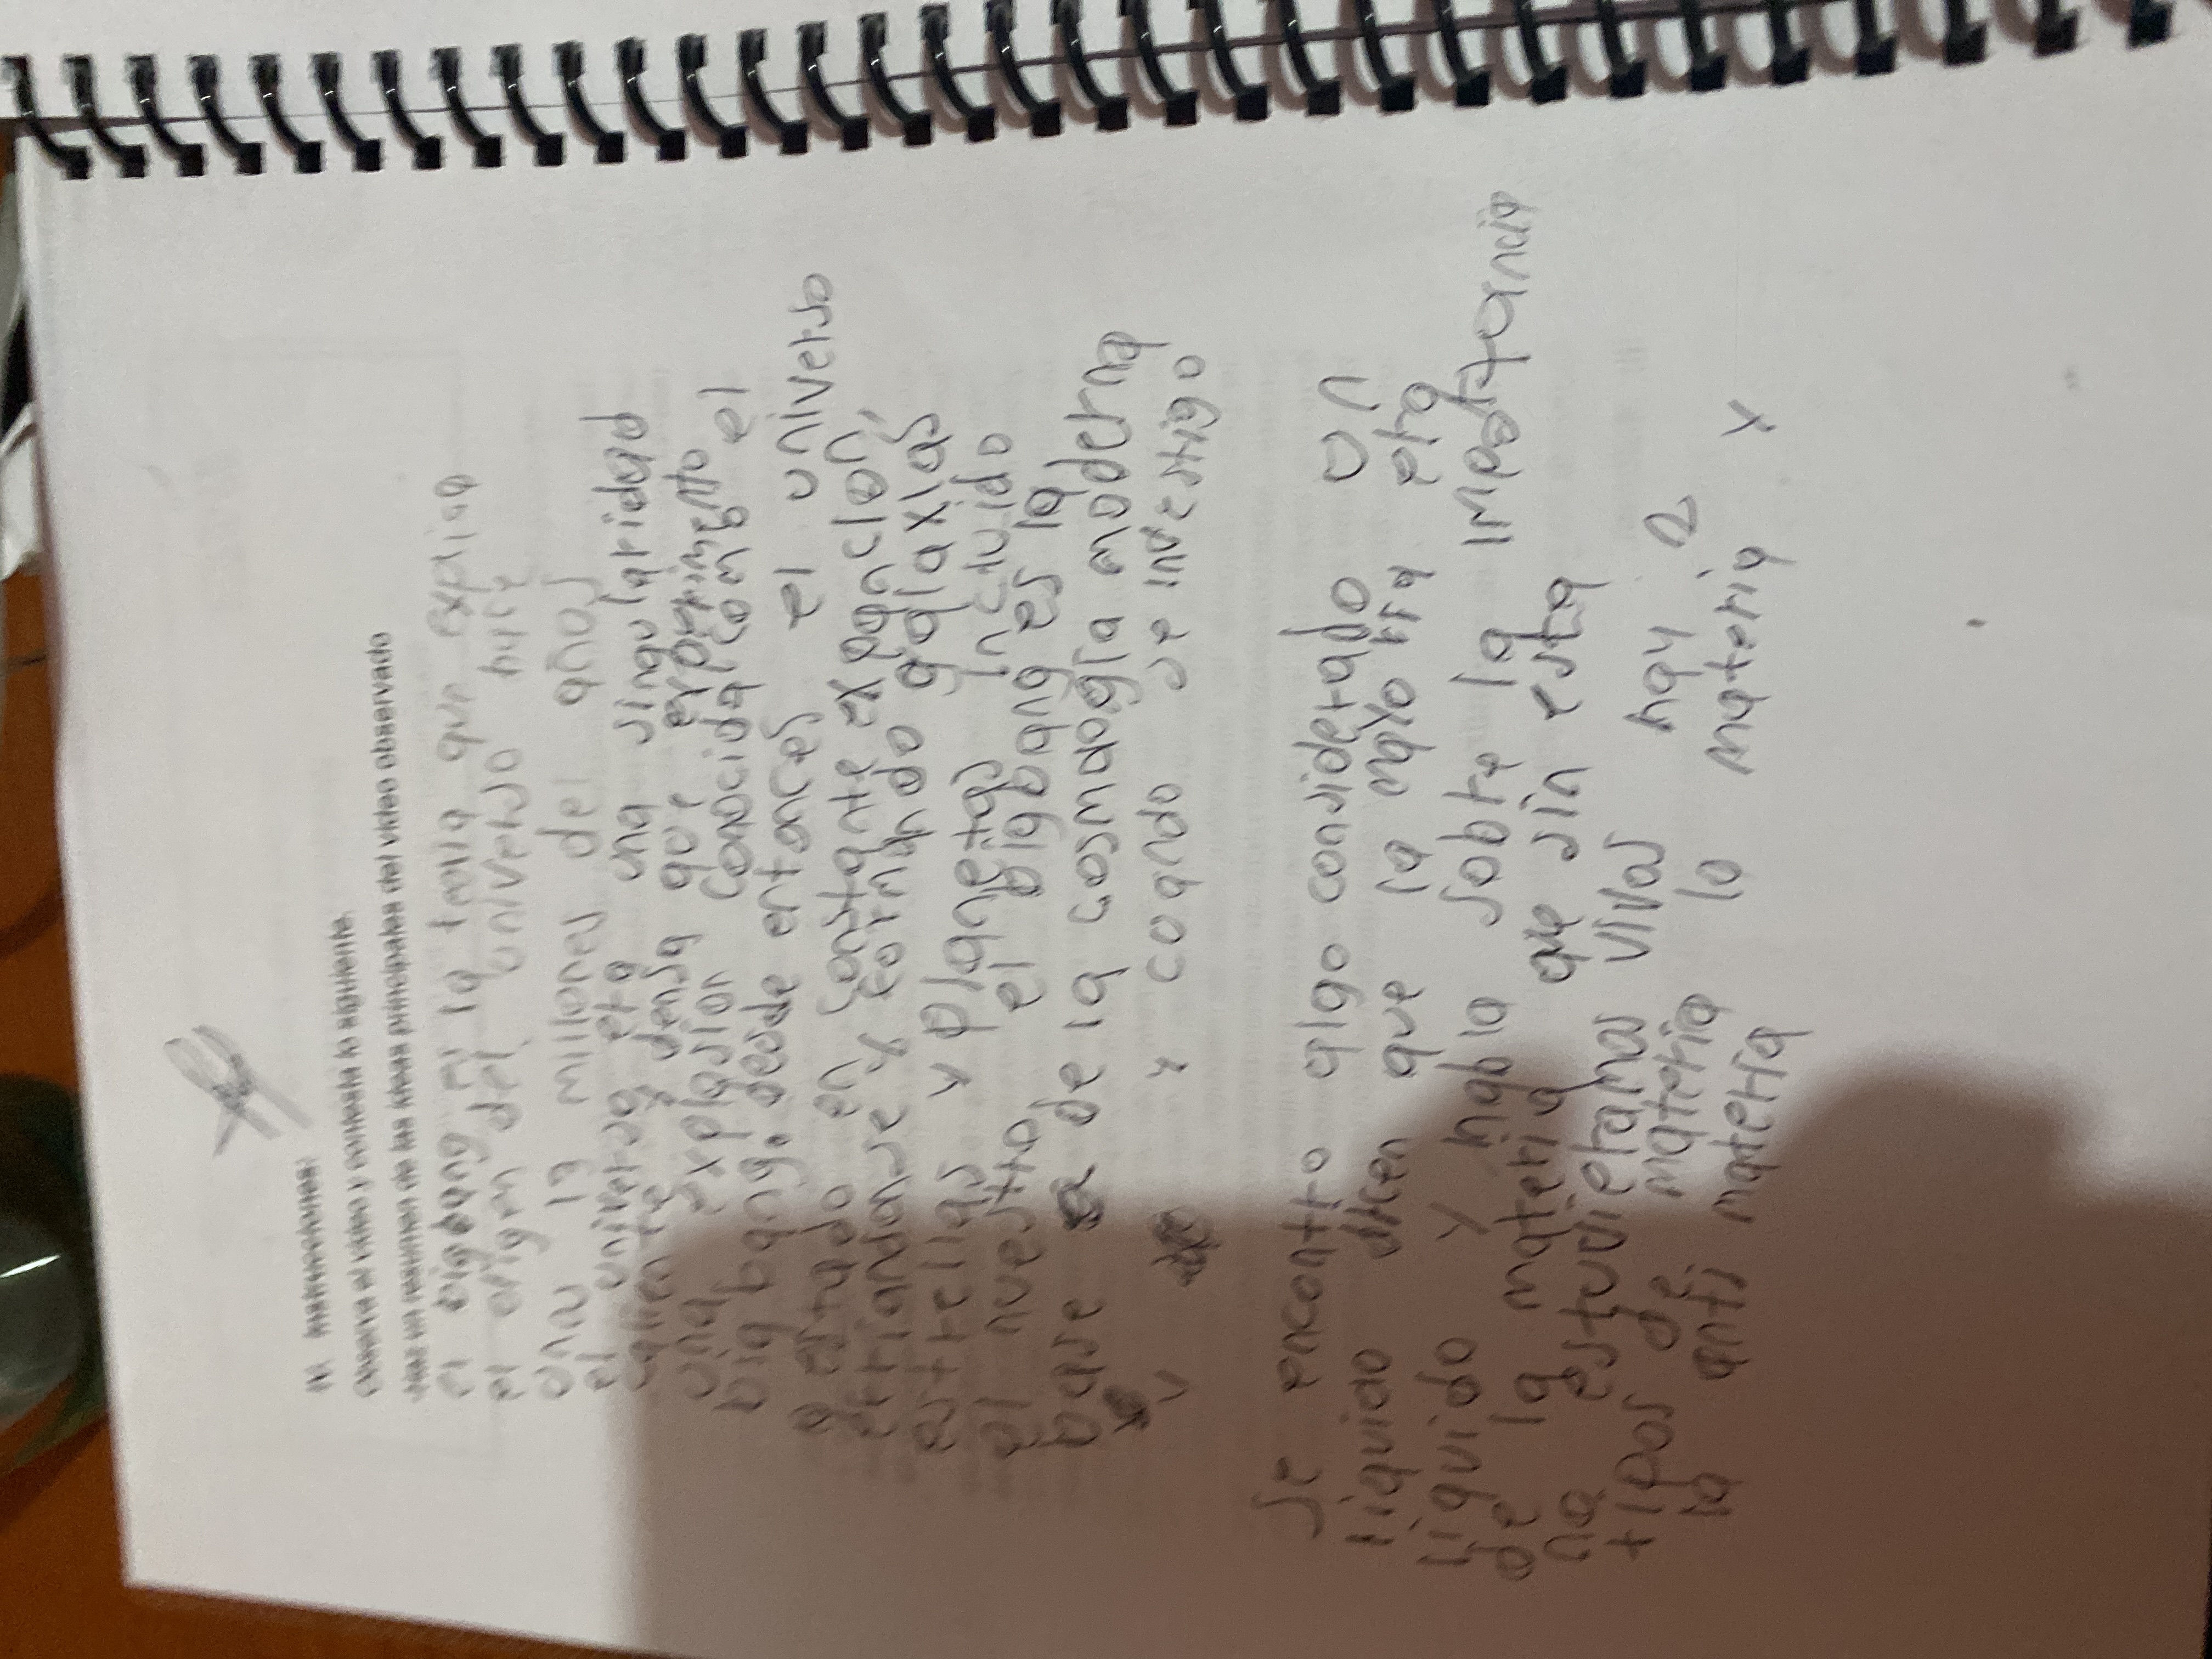 II. Instrucciones:
Observa el video y contesta lo siguiente.
Haz un resumen de las ideas principales del video observado
el big bang es la teoria que explica
el origen del universo hace
unos 13 millones del años
el universo era una singularidad
caliente y densa que experimento
una explosion conocida como el
big bang. desde entonces el universo
a estado en constante expanción,
efriandose y formando galaxias
estrellas y planetas incluido
al nuestro el big bang es la
base de la cosmología moderna
y cuando se investigo
se encontro algo considerado un
liquido dicen que la mayoria era
liquido y habla sobre la impoartancia
de la materia que sin esta
no estuvieramos vivos hay 2
tipos de materia lo materia y
la anti materia